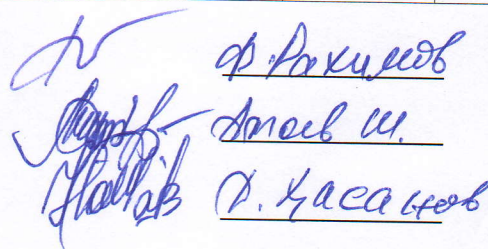 Ф. Рахимов
Атоев Ш.
Д. Ҳасанов